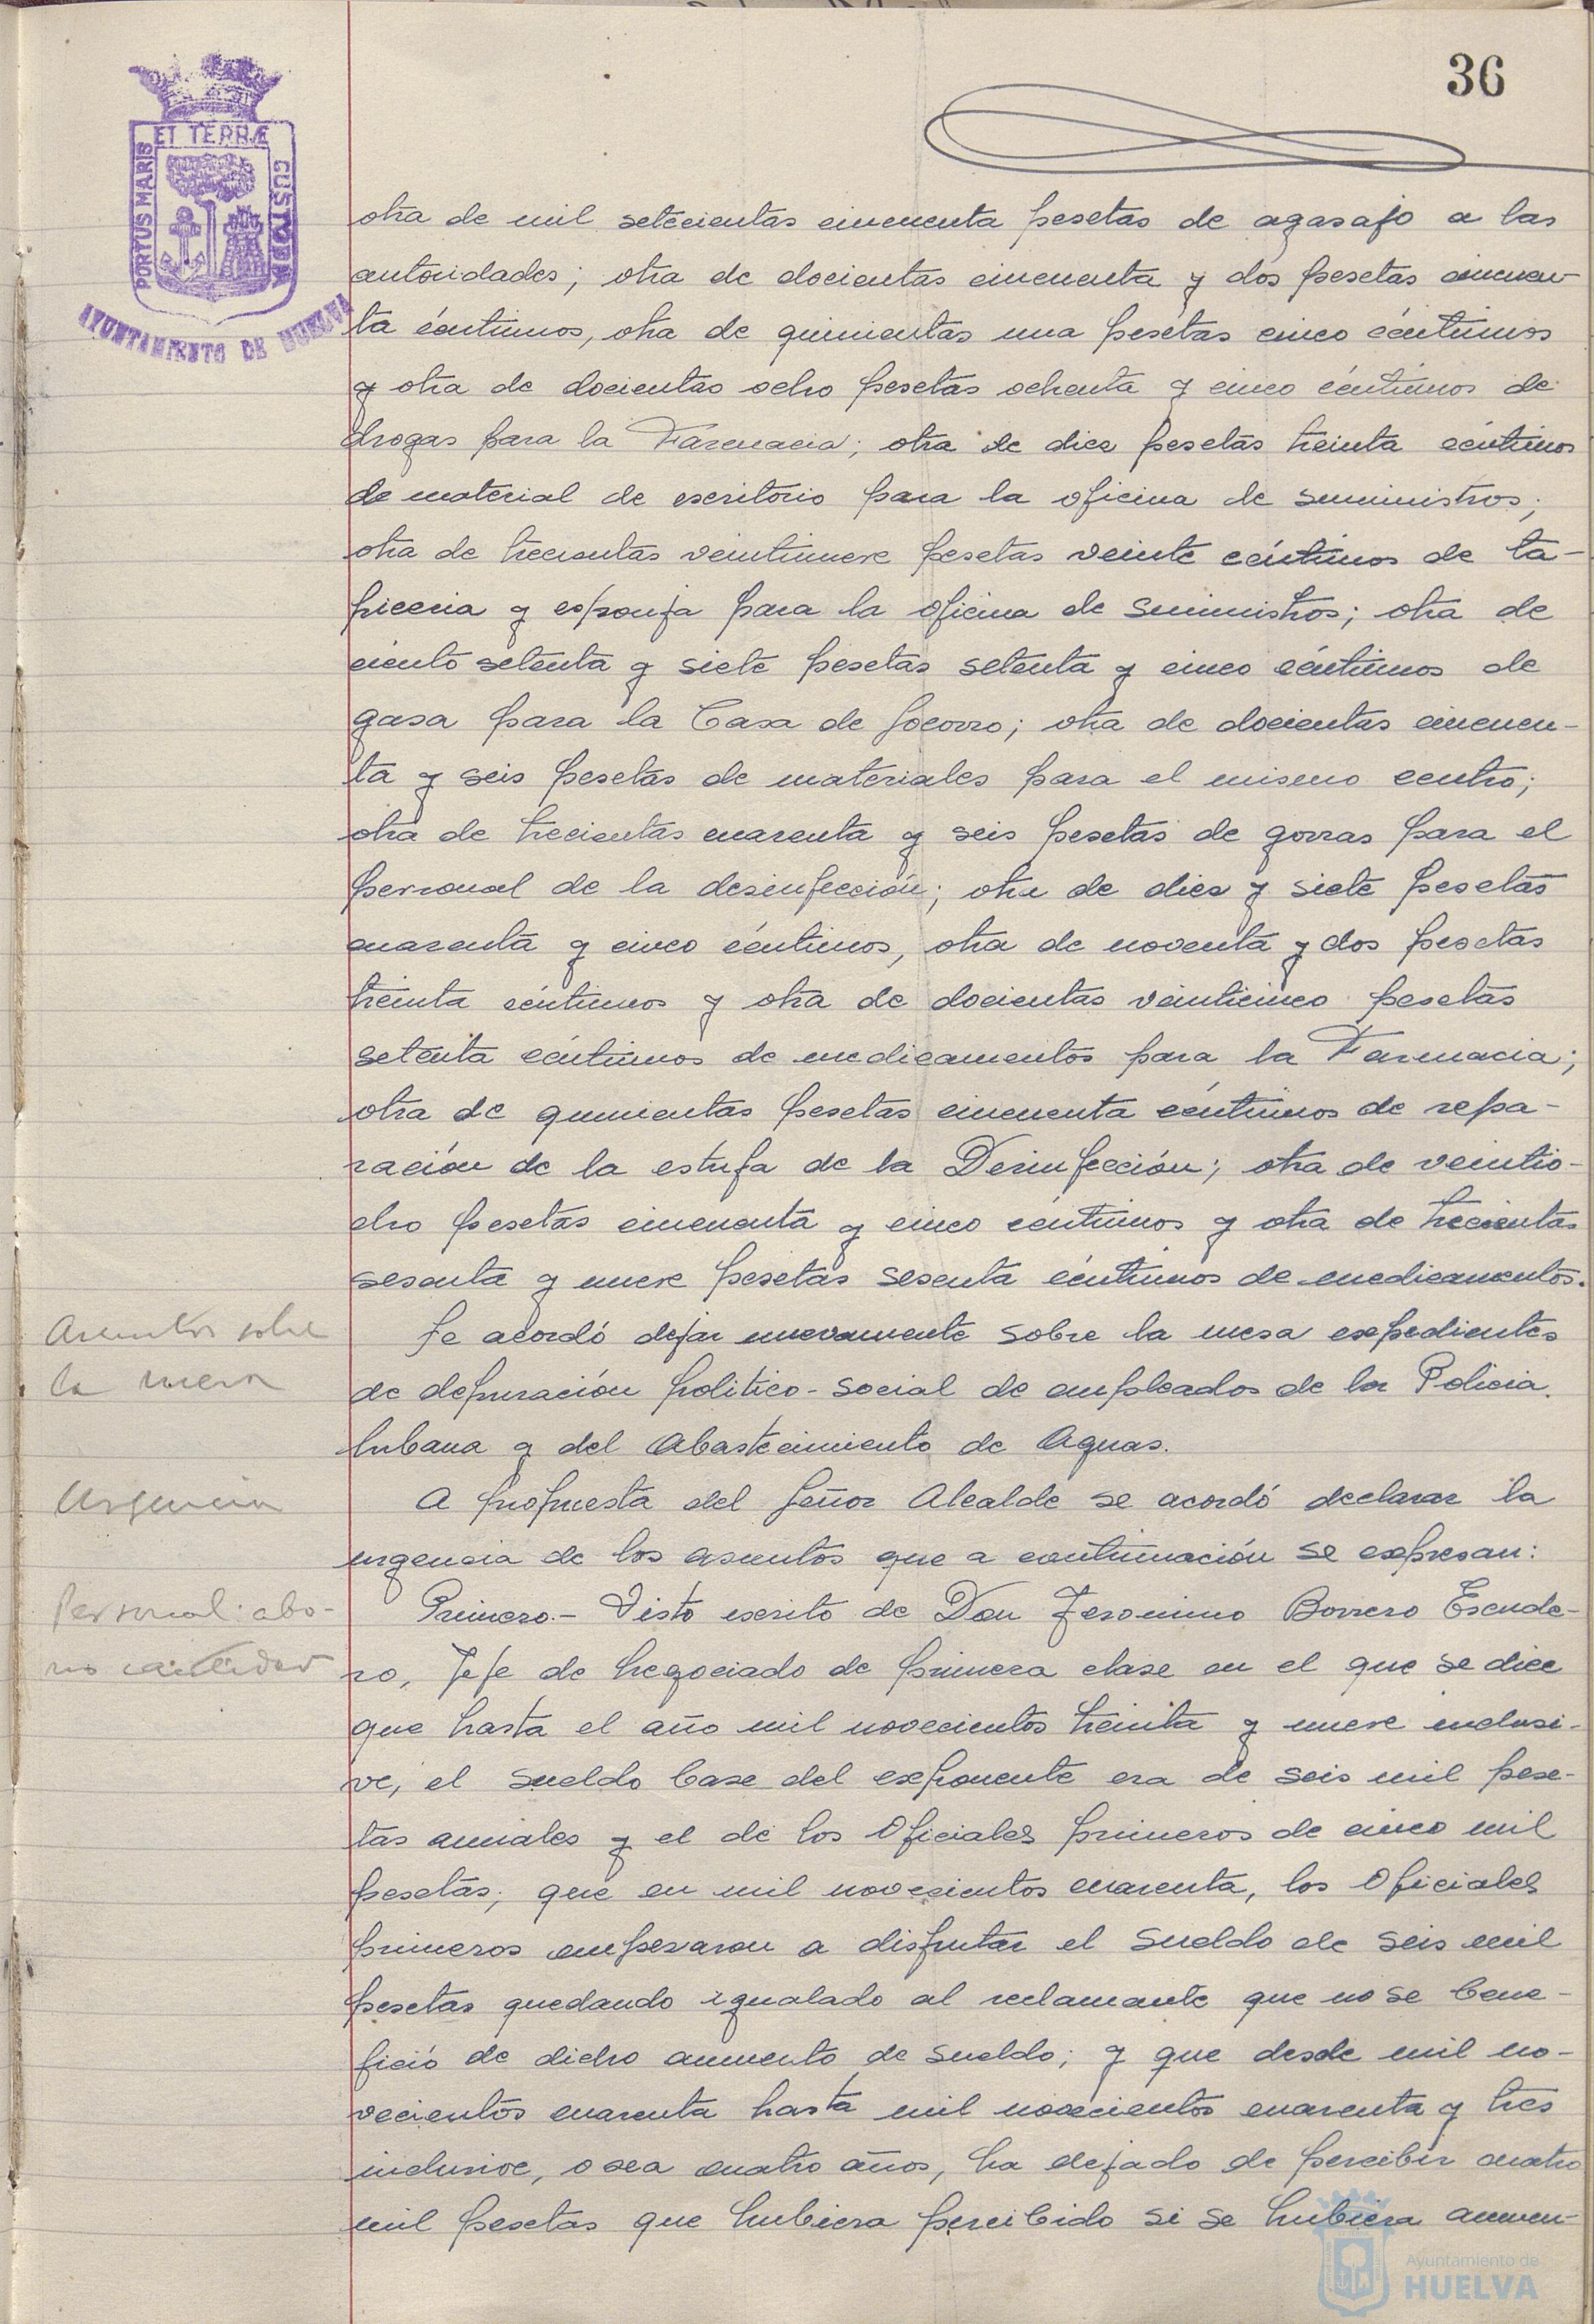 36
PORTUS MARIS ET TERRÆ CUSTODIA
AYUNTAMIENTO DE HUELVA
otra de mil setecientas cincuenta pesetas de agasajo a las
autoridades; otra de docientas cincuenta y dos pesetas cincuen-
ta céntimos, otra de quinientas una pesetas cinco céntimos
y otra de docientas ocho pesetas ochenta y cinco céntimos de
drogas para la Farmacia; otra de diez pesetas treinta céntimos
de material de escritorio para la oficina de suministros;
otra de trecientas veintinueve pesetas veinte céntimos de ta-
piceria y esponja para la oficina de suministros; otra de
ciento setenta y siete pesetas setenta y cinco céntimos de
gasa para la Casa de Socorro; otra de docientas cincuen-
ta y seis pesetas de materiales para el mismo centro;
otra de trecientas cuarenta y seis pesetas de gorras para el
personal de la desinfección; otra de diez y siete pesetas
cuarenta y cinco céntimos, otra de noventa y dos pesetas
treinta céntimos y otra de docientas veinticinco pesetas
setenta céntimos de medicamentos para la Farmacia;
otra de quinientas pesetas cincuenta céntimos de repa-
ración de la estufa de la Desinfección; otra de veintio-
cho pesetas cincuenta y cinco céntimos y otra de trecientas
sesenta y nueve pesetas sesenta céntimos de medicamentos.
Asuntos sobre
la mesa
Se acordó dejar nuevamente sobre la mesa expedientes
de depuración politico-social de empleados de la Policia
Urbana y del Abastecimiento de Aguas.
Urgencia
A propuesta del Señor Alcalde se acordó declarar la
urgencia de los asuntos que a continuación se expresan:
Personal: abo-
no cantidad
Primero.- Visto escrito de Don Jeronimo Borrero Escude-
ro, Jefe de Negociado de primera clase en el que se dice
que hasta el año mil novecientos treinta y nueve inclusi-
ve, el sueldo base del exponente era de seis mil pese-
tas anuales y el de los Oficiales primeros de cinco mil
pesetas; que en mil novecientos cuarenta, los Oficiales
primeros empezaron a disfrutar el sueldo de seis mil
pesetas quedando igualado al reclamante que no se bene-
fició de dicho aumento de sueldo; y que desde mil no-
vecientos cuarenta hasta mil novecientos cuarenta y tres
inclusive, o sea cuatro años, ha dejado de percibir cuatro
mil pesetas que hubiera percibido si se hubiera aumen-
Ayuntamiento de
HUELVA